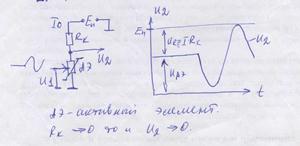 I0 Eп
Rк
U2
U1
аэ
U2
Eп
URк=IRк
Uаэ
U2
t
аэ - активный элемент.
Rк → 0 то и U2 → 0.